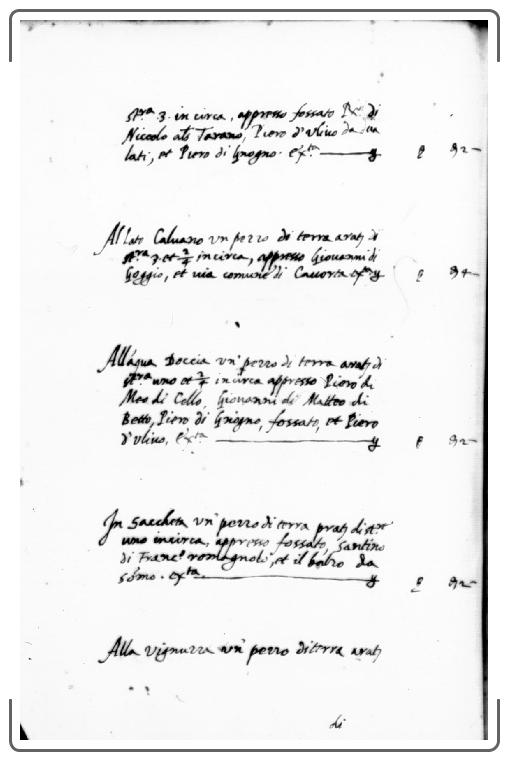 st.ra 3. in circa, appresso fossato di
Niccolo als Tarano, Piero d'Vliuo da
lati, et Piero di Gnogno. ex.ta
Al lato Caluano vn pezzo di terra arat; di
st.ra 3 et 2/4 incirca, appresso Giouanni di
Goggio, et uia comune di Cauorta
All'aqua Doccia un' pezzo di terra arat; di
st.ra uno et 2/4 in circa appresso Piero di
Meo di Cello, Giouanni di Matteo di
Betto, Piero di Gnogno, fossato, et Piero
d'Vliuo. ex.ta
In Saccheta vn' pezzo di terra prat; di st.re
uno incirca, appresso fossato, Santino
di Franc.o romagnolo, et il da
sómo. ex.ta
Alla vignuzza un' pezzo di terra arat;
di